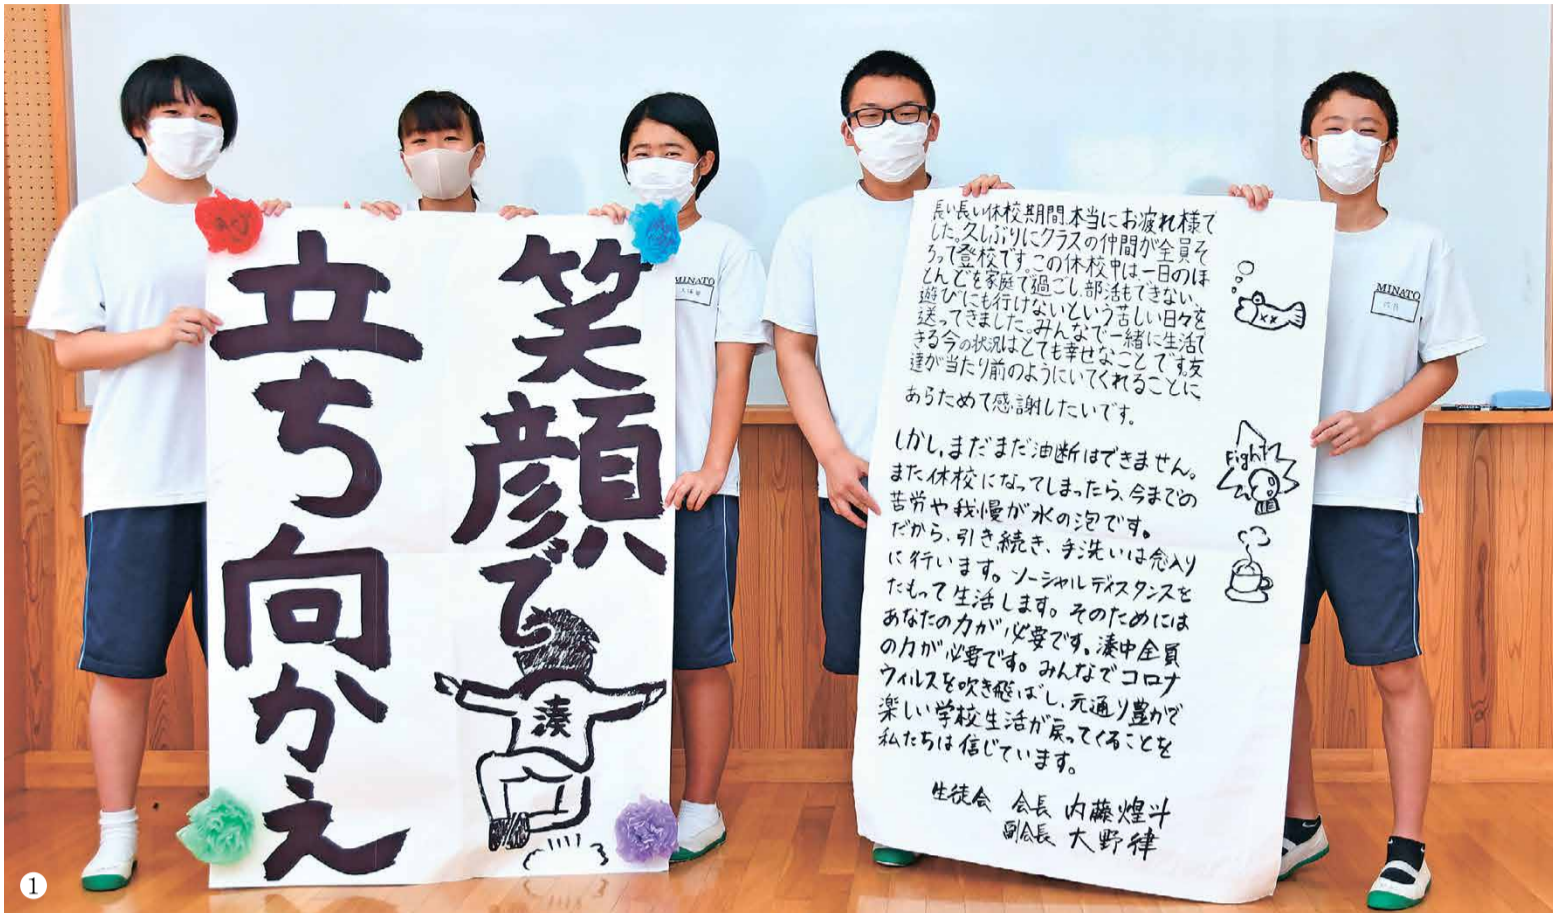 笑顔で
立ち向かえ
湊
MINATO
長い長い休校期間、本当にお疲れ様で
した。久しぶりにクラスの仲間が全員そ
ろって登校です。この休校中は一日のほ
とんどを家庭で過ごし、部活もできない、
遊びにも行けないという苦しい日々を
送ってきました。みんなで一緒に生活で
きる今の状況はとても幸せなことです。友
達が当たり前のようにいてくれることに
あらためて感謝したいです。
しかし、まだまだ油断はできません。
また休校になってしまったら、今までの
苦労や我慢が水の泡です。
だから、引き続き、手洗いは念入り
に行います。ソーシャルディスタンスを
たもって生活します。そのためには
あなたの力が必要です。湊中全員
の力が必要です。みんなでコロナ
ウィルスを吹き飛ばし、元通り豊かで
楽しい学校生活が戻ってくることを
私たちは信じています。
生徒会 会長 内藤煌斗
副会長 大野律
Fight
MINATO
1